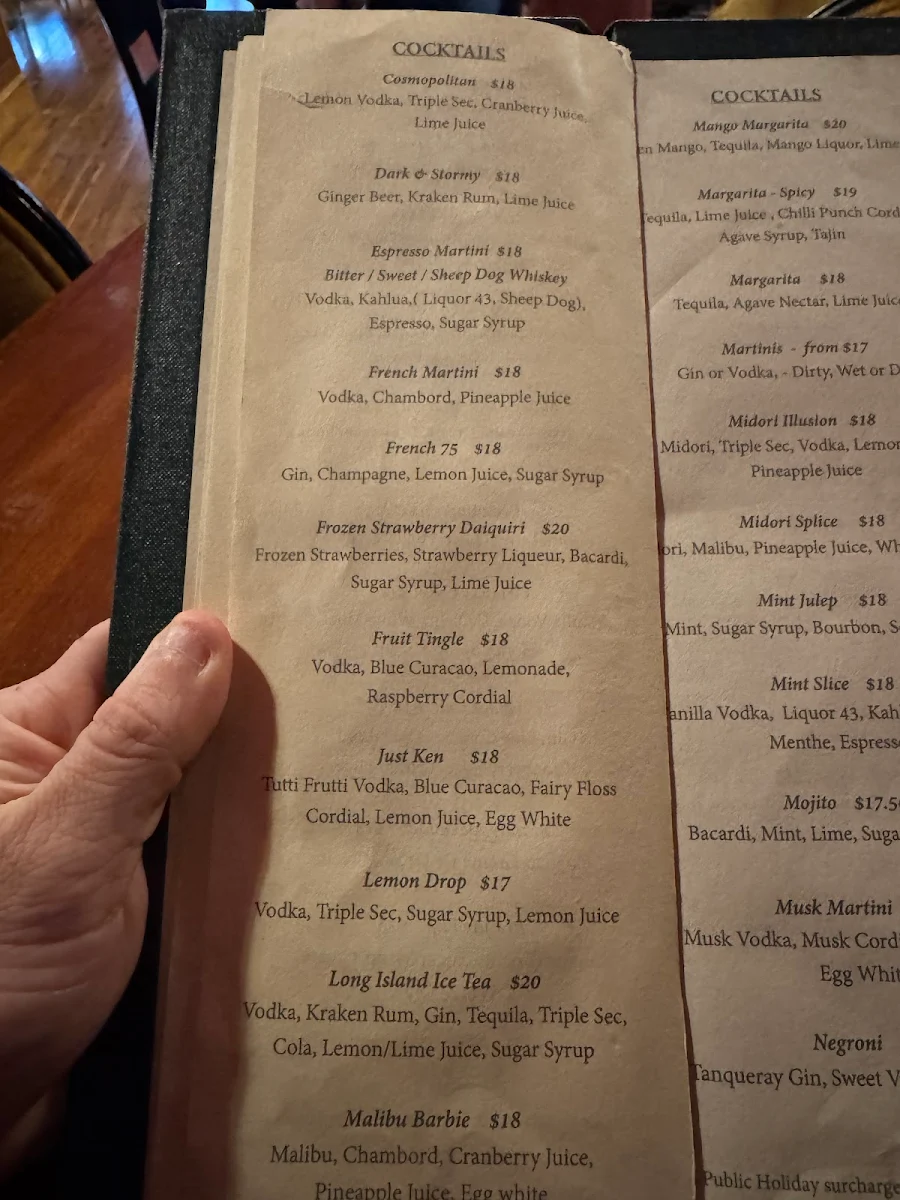 COCKTAILS
Cosmopolitan $18
Lemon Vodka, Triple Sec, Cranberry Juice,
Lime Juice
Dark & Stormy $18
Ginger Beer, Kraken Rum, Lime Juice
Espresso Martini $18
Bitter / Sweet / Sheep Dog Whiskey
Vodka, Kahlua,( Liquor 43, Sheep Dog),
Espresso, Sugar Syrup
French Martini $18
Vodka, Chambord, Pineapple Juice
French 75 $18
Gin, Champagne, Lemon Juice, Sugar Syrup
Frozen Strawberry Daiquiri $20
Frozen Strawberries, Strawberry Liqueur, Bacardi,
Sugar Syrup, Lime Juice
Fruit Tingle $18
Vodka, Blue Curacao, Lemonade,
Raspberry Cordial
Just Ken $18
Tutti Frutti Vodka, Blue Curacao, Fairy Floss
Cordial, Lemon Juice, Egg White
Lemon Drop $17
Vodka, Triple Sec, Sugar Syrup, Lemon Juice
Long Island Ice Tea $20
Vodka, Kraken Rum, Gin, Tequila, Triple Sec,
Cola, Lemon/Lime Juice, Sugar Syrup
Malibu Barbie $18
Malibu, Chambord, Cranberry Juice,
Pineapple Juice, Egg white
COCKTAILS
Mango Margarita $20
en Mango, Tequila, Mango Liquor, Lime
Margarita - Spicy $19
Tequila, Lime Juice , Chilli Punch Cord
Agave Syrup, Tajin
Margarita $18
Tequila, Agave Nectar, Lime Juic
Martinis - from $17
Gin or Vodka, - Dirty, Wet or D
Midori Illusion $18
Midori, Triple Sec, Vodka, Lemon
Pineapple Juice
Midori Splice $18
ori, Malibu, Pineapple Juice, Wh
Mint Julep $18
Mint, Sugar Syrup, Bourbon, S
Mint Slice $18
anilla Vodka, Liquor 43, Kah
Menthe, Espress
Mojito $17.5
Bacardi, Mint, Lime, Suga
Musk Martini
Musk Vodka, Musk Cord
Egg Whit
Negroni
Tanqueray Gin, Sweet V
Public Holiday surcharge